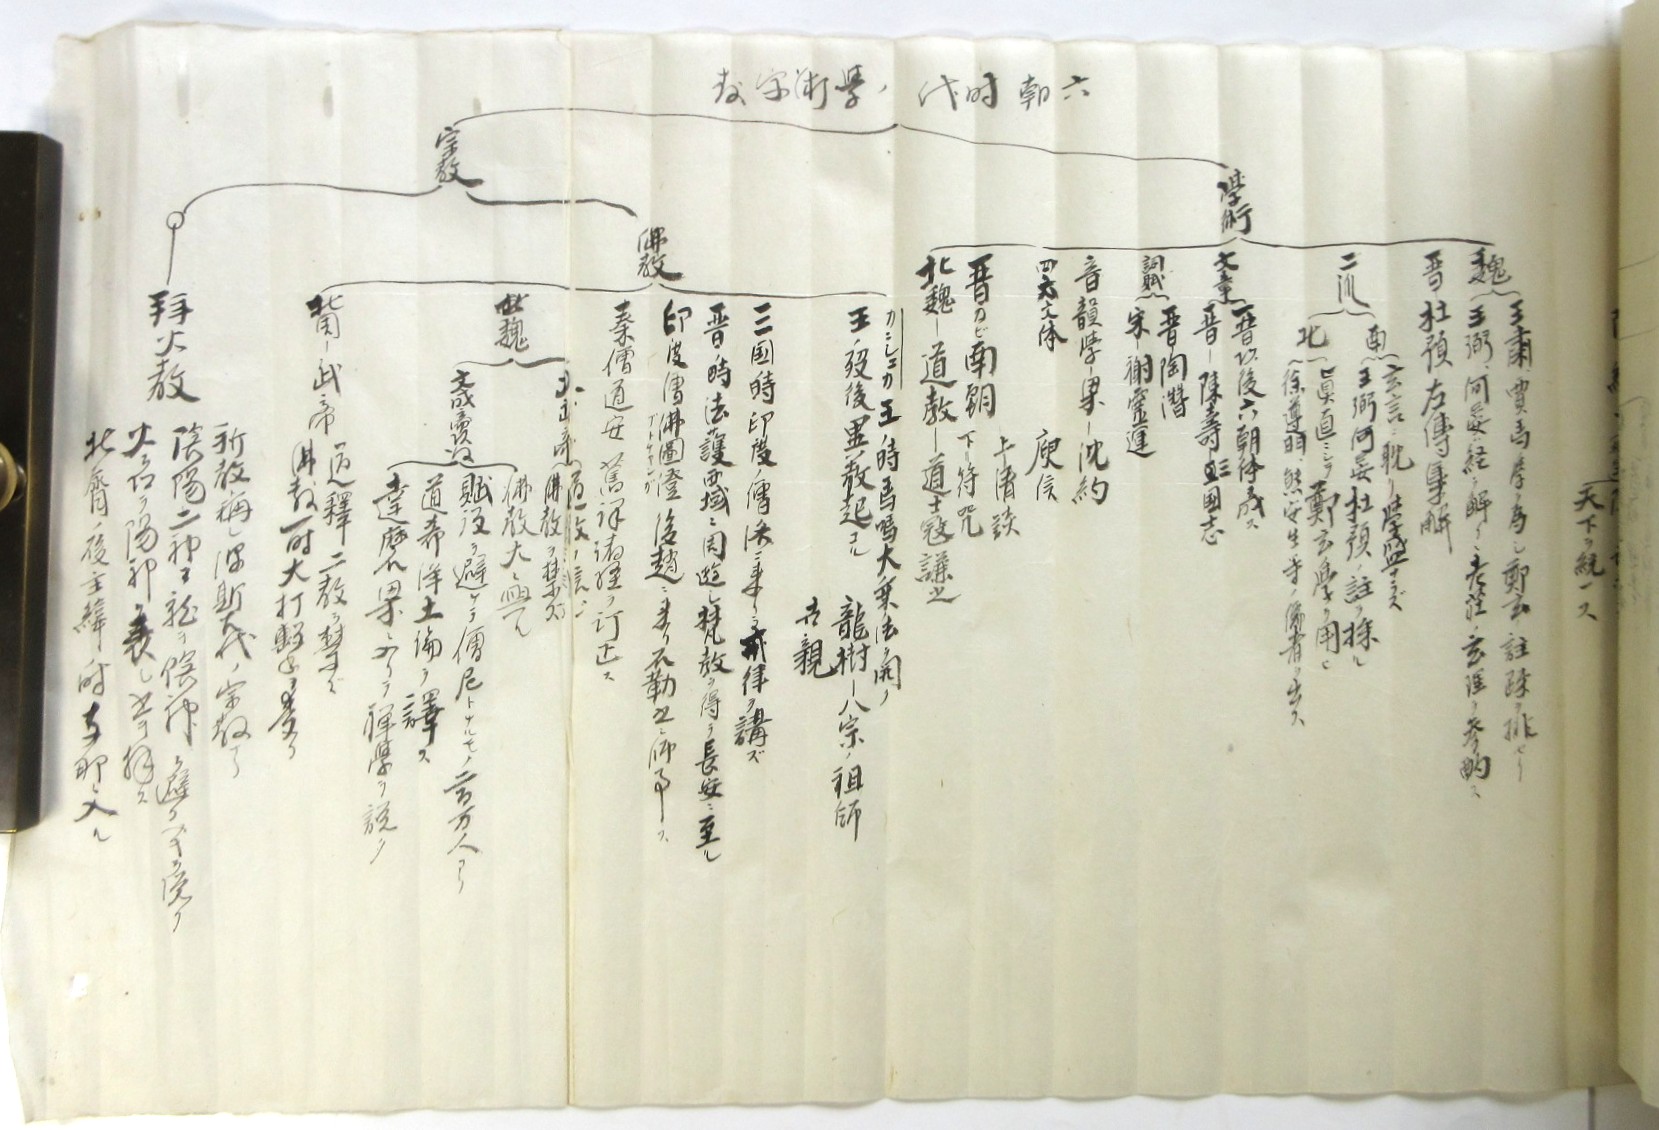 六朝時代ノ學術宗教
學術
魏
王肅 賈馬
王弼、何晏ハ経ヲ解クニ老莊ノ玄理ヲ参酌ス
晋 杜預 左傳集解
二派
南
玄言ニ耽リ學盛ナラズ
王弼何晏杜預ノ註ヲ採ル
北
眞直ニシテ鄭玄ノ學ヲ用ヒ
徐遵明 熊安生等ノ儒者ヲ出ス
文章
晋以後六朝体ヲ成ス
晋ー陳壽 三国志
詞賦
晋 陶潜
宋ー謝靈運
音韻學ー梁ー沈約
四六文体 庾信
晋及ビ南朝
上 清談
下ー符咒
北魏ー道教ー道士寇謙之
宗教
佛教
カニシカ王ノ時馬鳴大乗法ヲ開ク
王ノ歿後異教起ル 龍樹ー八宗ノ祖師
世親
三国時印度僧洛ニ来リテ戒律ヲ講ズ
晋ノ時法護西域ニ周遊シ梵教ヲ得テ長安ニ至ル
印度僧佛圖澄 後趙ニ来リ石勒之ニ師事ス
秦僧道安 舊譯諸経ヲ訂正ス
北魏
太武帝
道教ヲ信ジ
佛教ヲ禁ズ
文成
佛教大ニ興ル
賦役ヲ避ケテ僧尼トナルモノ二百万人アリ
道希 洋土論ヲ譯ス
達磨及梁ニ入リテ禪學ヲ説ク
北周ー武帝
道釋二教ヲ禁ズ
佛教一時大打撃ヲ受ク
拜火教
祆教ト稱シ波斯古代ノ宗教ナリ
陰陽二神ヲ説キ陰神ヲ避ケ
火ヲ以テ陽神ヲ表シ之ヲ拜ス
北齊ノ後主緯ノ時支那ニ入ル
天下ヲ統一ス